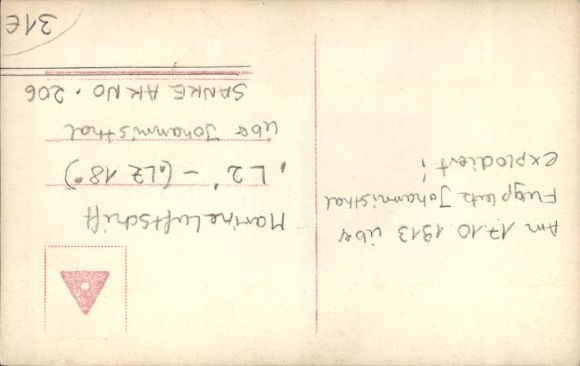 Am 17.10.1913 über
Flugplatz Johannisthal
explodiert!
Marineluftschiff
„L2“ – („LZ 18“)
über Johannisthal
SANKE AK NO. 206
31€